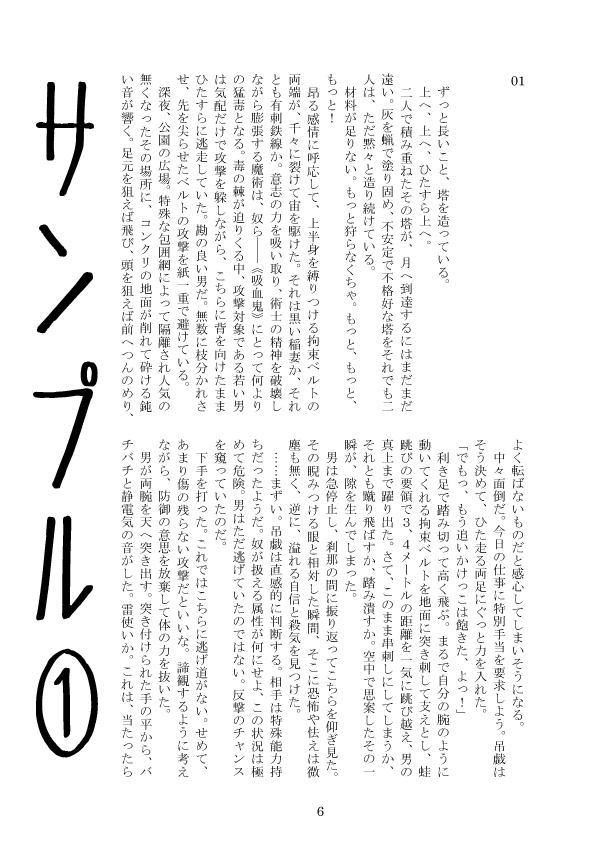 01
ずっと長いこと、塔を造っている。
上へ、上へ、ひたすら上へ。
二人で積み重ねたその塔が、月へ到達するにはまだまだ
遠い。灰を蝋で塗り固め、不安定で不格好な塔をそれでも二
人は、ただ黙々と造り続けている。
材料が足りない。もっと狩らなくちゃ。もっと、もっと、
もっと！
昂る感情に呼応して、上半身を縛りつける拘束ベルトの
両端が、千々に裂けて宙を駆けた。それは黒い稲妻か、それ
とも有刺鉄線か。意志の力を吸い取り、術士の精神を破壊し
ながら膨張する魔術は、奴ら――《吸血鬼》にとって何より
の猛毒となる。毒の棘が迫りくる中、攻撃対象である若い男
は気配だけで攻撃を躱しながら、こちらに背を向けたまま
ひたすらに逃走していた。勘の良い男だ。無数に枝分かれさ
せ、先を尖らせたベルトの攻撃を紙一重で避けている。
深夜、公園の広場。特殊な包囲網によって隔離され人気の
無くなったその場所に、コンクリの地面が削れて砕ける鈍
い音が響く。足元を狙えば飛び、頭を狙えば前へつんのめり、
よく転ばないものだと感心してしまいそうになる。
中々面倒だ。今日の仕事に特別手当を要求しよう。吊戯は
そう決めて、ひた走る両足にぐっと力を入れた。
「でもっ、もう追いかけっこは飽きた、よっ！」
利き足で踏み切って高く飛ぶ。まるで自分の腕のように
動いてくれる拘束ベルトを地面に突き刺して支えとし、蛙
跳びの要領で３、４メートルの距離を一気に跳び越え、男の
真上まで躍り出た。さて、このまま串刺しにしてしまうか、
それとも蹴り飛ばすか、踏み潰すか。空中で思案したその一
瞬が、隙を生んでしまった。
男は急停止し、刹那の間に振り返ってこちらを仰ぎ見た。
その睨みつける眼と相対した瞬間、そこに恐怖や怯えは微
塵も無く、逆に、溢れる自信と殺気を見つけた。
……まずい。吊戯は直感的に判断する。相手は特殊能力持
ちだったようだ。奴が扱える属性が何にせよ、この状況は極
めて危険。男はただ逃げていたのではない。反撃のチャンス
を窺っていたのだ。
下手を打った。これではこちらに逃げ道がない。せめて、
あまり傷の残らない攻撃だといいな。諦観するように考え
ながら、防御の意思を放棄して体の力を抜いた。
男が両腕を天へ突き出す。突き付けられた手の平から、バ
チバチと静電気の音がした。雷使いか。これは、当たったら
サンプル①
6